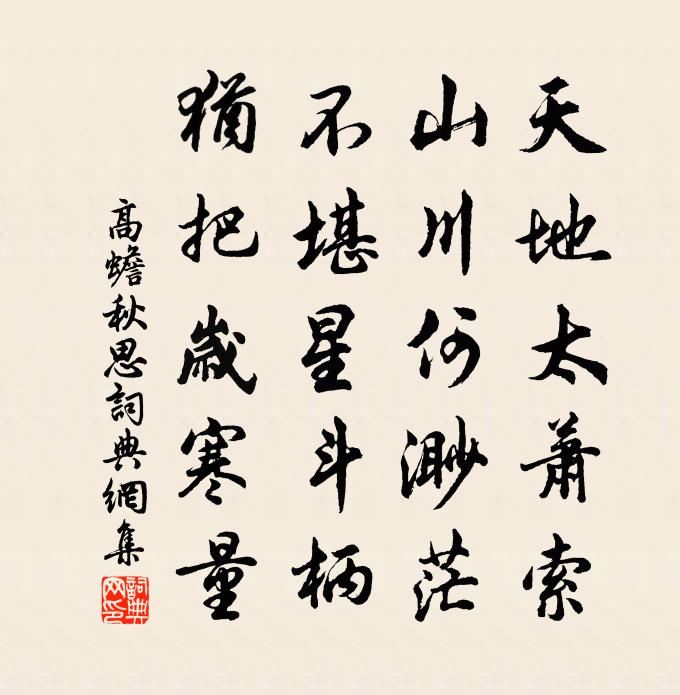 天地太蕭索
山川何渺茫
不堪星斗柄
猶把歲寒量
高蟾秋思詞典網集
詞典網印